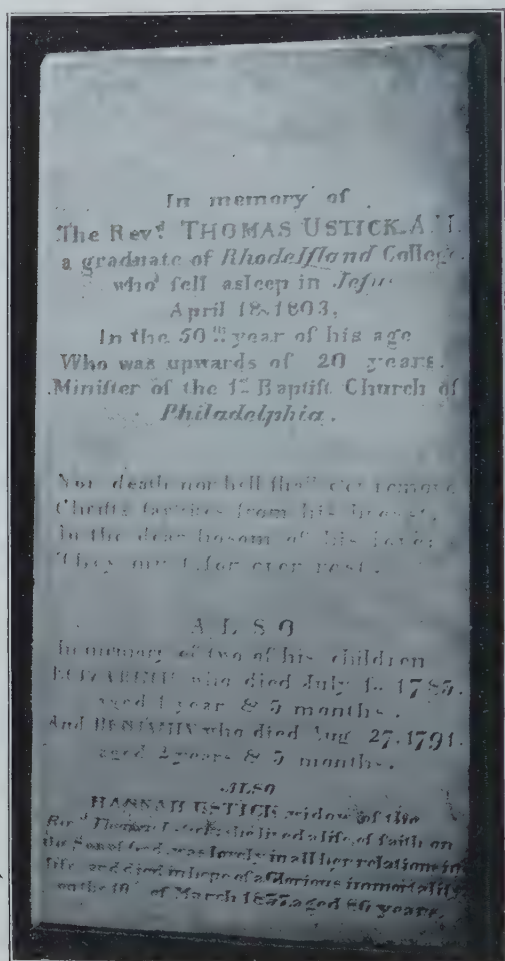 In memory of
The Revd. THOMAS USTICK A.M.
a graduate of RhodeIſland College.
who fell asleep in Jeſu
April 18 1803,
In the 50th year of his age
Who was upwards of 20 years.
Miniſter of the 1st Baptiſt Church of
Philadelphia.
Nor death nor hell ſhall e'er remove
Chriſts from his breast,
In the dear bosom of his love,
They muſt for ever rest.
ALSO
In memory of two of his children
ELIZABETH who died July 1785.
aged 1 year & 5 months.
And BENJAMIN who died Aug 27. 1791.
aged 2 years & 5 months.
ALSO
HANNAH USTICK widow of the
Revd Thomas Ustick she lived a life of faith on
the Son of God, was lovely in all her relations in
life and died in hope of a Glorious immortality
on the of March aged years.